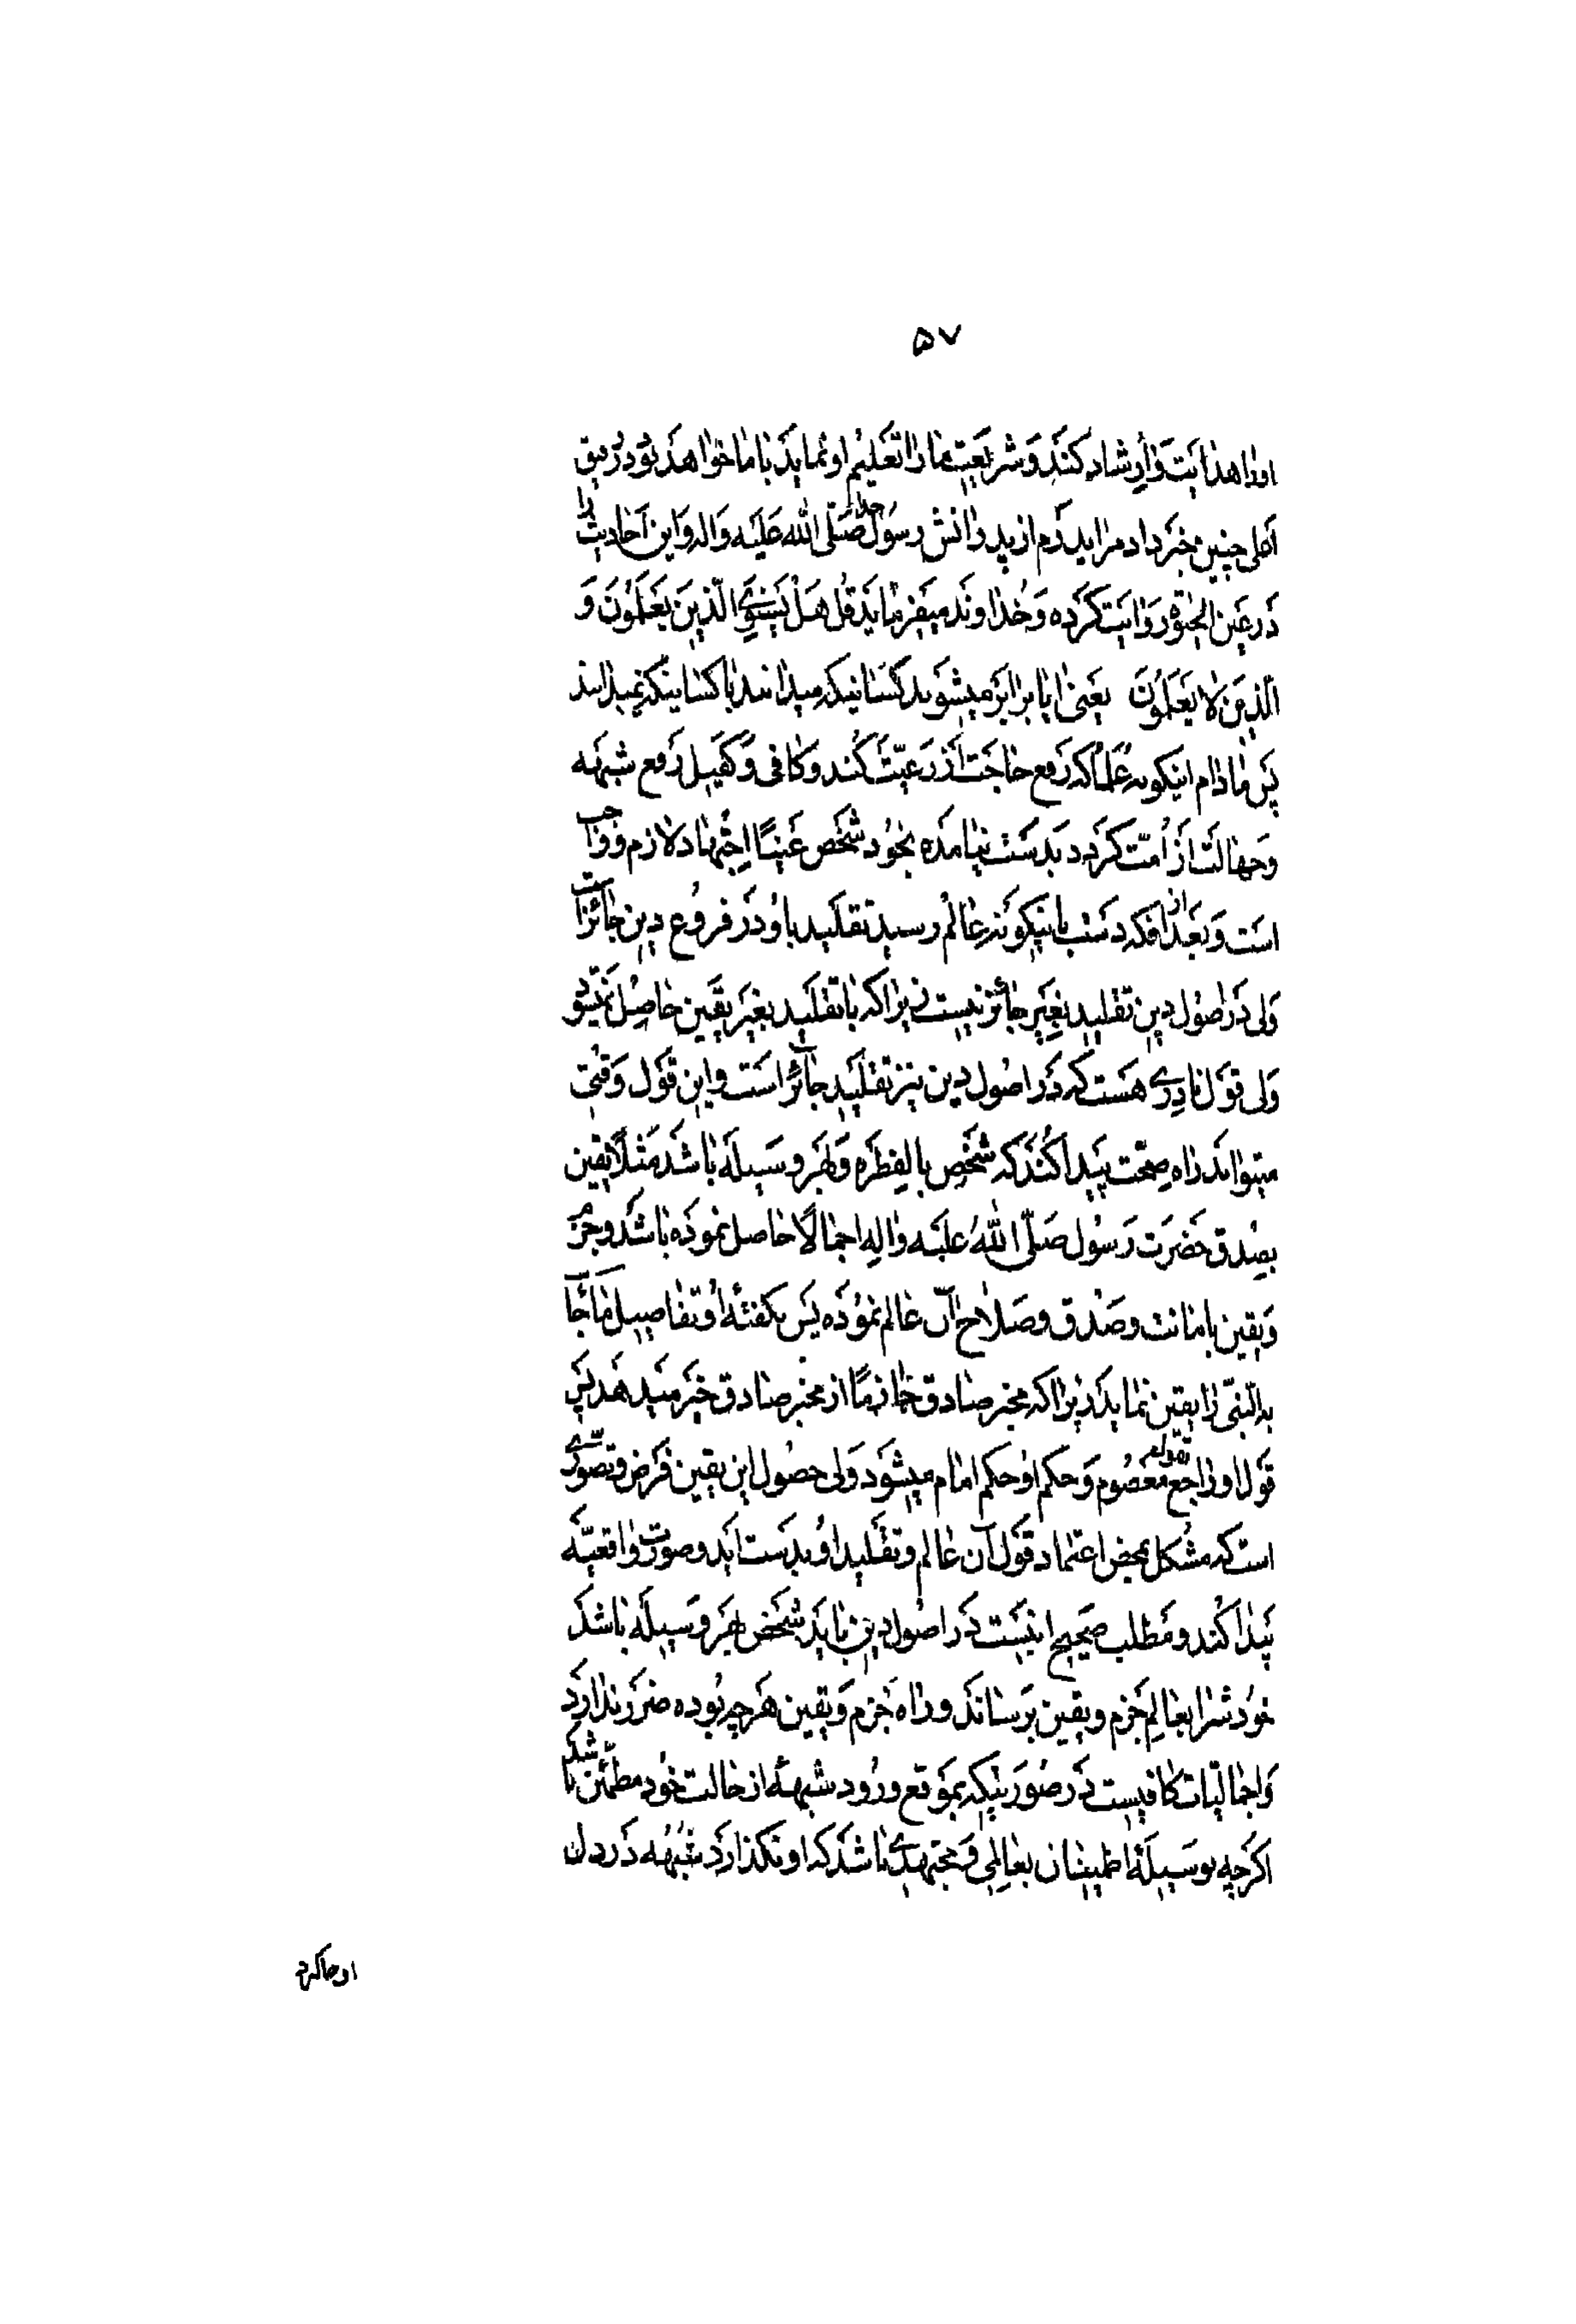 ۵۷
اورا هدایت و ارشاد کند و شریعت ما را تعلیم او نماید با ما خواهد بود در رفیق
اعلی چنین خبر داد مرا پدرم از پدرانش رسول خدا صلی الله علیه واله و این احادیث را
در عین الحیوة روایت کرده و خداوند میفرماید قل هل یستوی الذین یعلمون و
الذین لا یعلمون یعنی ایا برابر میشوند کسانیکه میدانند با کسانیکه نمیدانند
پس مادام اینگونه علما که رفع حاجت از رعیت کنند و کافی و کفیل رفع شبهه
و جهالت از امت گردد بدست نیامده بخود شخص عیناً اجتهاد لازم و واجب
است و بعد از انکه دست باینگونه عالم رسید تقلید باو در فروع دین جائز است
ولی در اصول دین تقلید بغیر جائز نیست زیرا که با تقلید بغیر یقین حاصل نمیشود
ولی قول نادری هست که در اصول دین نیز تقلید جائز است و این قول وقتی
میتواند راه صحت پیدا کند که شخص بالفطره و بهر وسیله باشد مثلاً یقین
بصدق حضرت رسول صلی الله علیه واله اجمالا حاصل نموده باشد و جزم
و یقین بامانت و صدق و صلاح آن عالم نموده پس بگفتهٔ او تفاصیل ما جاء
به النبی را یقین نماید زیرا که مخبر صادق جازماً از مخبر صادق خبر میدهد پس
قول او راجع بقول معصوم و حکم او حکم امام میشود ولی حصول این یقین فرض و تصوری
است که مشکل بمحض اعتماد قول آن عالم و تقلید او بدست اید و صورت واقعیه
پیدا کند و مطلب صحیح اینست در اصول دین باید شخص بهر وسیله باشد
خودش را بعالم جزم و یقین برساند و راه جزم و یقین هر چه بوده ضرر ندارد
و اجمالیات کافیست در صورتیکه بموقع ورود شبهه از حالت خود مطمئن باشد
اگرچه بوسیلهٔ اطمینان بعالمی و مجتهدی باشد که او نگذارد شبهه در دل
او جاگیرد